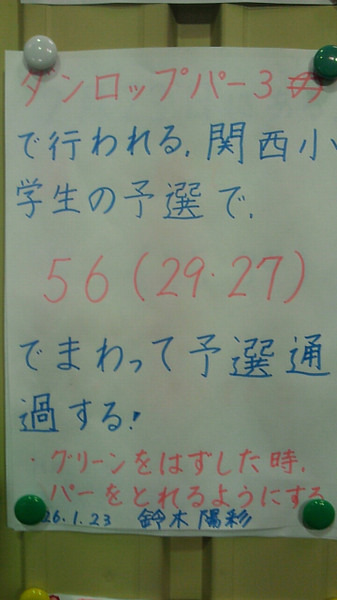 ダンロップパー3
で行われる、関西小
学生の予選で、
56(29・27)
でまわって予選通
過する!
・グリーンをはずした時、
パーをとれるようにする
26.1.23 鈴木陽彩